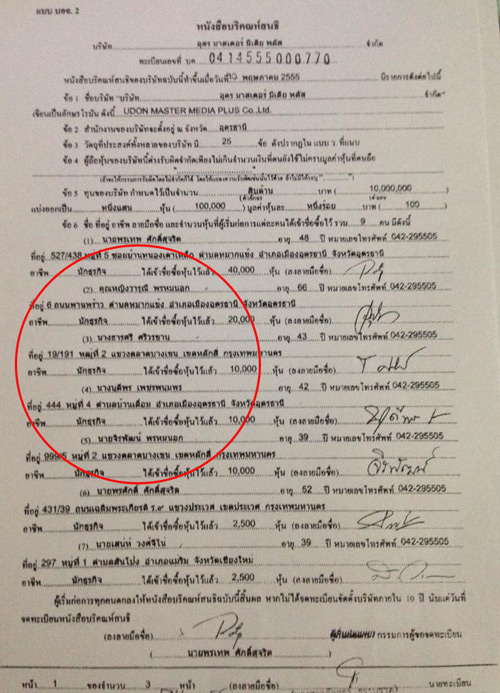 แบบ บอจ. 2
หนังสือบริคณห์สนธิ
บริษัท อุดร มาสเตอร์ มีเดีย พลัส จำกัด
ทะเบียนเลขที่ บค 0414555000770
หนังสือบริคณห์สนธิของบริษัทฉบับนี้ทำขึ้นเมื่อวันที่ 10 พฤษภาคม 2555 มีรายการดังต่อไปนี้
ข้อ 1 ชื่อบริษัท "บริษัท อุดร มาสเตอร์ มีเดีย พลัส จำกัด"
เขียนเป็นอักษรโรมัน ดังนี้ UDON MASTER MEDIA PLUS Co.,Ltd.
ข้อ 2 สำนักงานของบริษัทจะตั้งอยู่ ณ จังหวัด อุดรธานี
ข้อ 3 วัตถุที่ประสงค์ทั้งหลายของบริษัท มี 25 ข้อ ดังปรากฏใน แบบ ว. ที่แนบ
ข้อ 4 ผู้ถือหุ้นของบริษัทนี้ต่างรับผิดจำกัดเพียงไม่เกินจำนวนเงินที่ตนยังใช้ไม่ครบมูลค่าหุ้นที่ตนถือ
ข้อ 5 ทุนของบริษัท กำหนดไว้เป็นจำนวน สิบล้าน บาท ( 10,000,000 )
(ตัวอักษร) ตัวเลข
แบ่งออกเป็น หนึ่งแสน หุ้น ( 100,000 ) มูลค่าหุ้นละ หนึ่งร้อย บาท ( 100 )
ข้อ 6 ชื่อ ที่อยู่ อาชีพ ลายมือชื่อ และจำนวนหุ้นที่ผู้เริ่มก่อการแต่ละคนได้เข้าชื่อซื้อไว้ รวม 9 คน มีดังนี้
(1) นายพรเทพ ศักดิ์สุจริต อายุ 48 ปี หมายเลขโทรศัพท์ 042-295505
ที่อยู่ 527/438 หมู่ที่ 5 ซอยบ้านหนองเตาเหล็ก ตำบลหมากแข้ง อำเภอเมืองอุดรธานี จังหวัดอุดรธานี
อาชีพ นักธุรกิจ ได้เข้าชื่อซื้อหุ้นไว้แล้ว 40,000 หุ้น (ลงลายมือชื่อ)
(2) คุณหญิงวารุณี พรหมนอก อายุ 66 ปี หมายเลขโทรศัพท์ 042-295505
ที่อยู่ 6 ถนนพานพร้าว ตำบลหมากแข้ง อำเภอเมืองอุดรธานี จังหวัดอุดรธานี
อาชีพ นักธุรกิจ ได้เข้าชื่อซื้อหุ้นไว้แล้ว 20,000 หุ้น (ลงลายมือชื่อ)
(3) อายุ 43 ปี หมายเลขโทรศัพท์ 042-295505
ที่อยู่ 19/191 หมู่ที่ 2 แขวงตลาดบางเขน เขตหลักสี่ กรุงเทพมหานคร
อาชีพ นักธุรกิจ ได้เข้าชื่อซื้อหุ้นไว้แล้ว 10,000 หุ้น (ลงลายมือชื่อ)
(4) อายุ 42 ปี หมายเลขโทรศัพท์ 042-295505
ที่อยู่ 444 หมู่ที่ 4 ตำบลบ้านเลื่อม อำเภอเมืองอุดรธานี จังหวัดอุดรธานี
อาชีพ นักธุรกิจ ได้เข้าชื่อซื้อหุ้นไว้แล้ว 10,000 หุ้น (ลงลายมือชื่อ)
(5) นายจิรพัฒน์ พรหมนอก อายุ 39 ปี หมายเลขโทรศัพท์ 042-295505
ที่อยู่ 999/5 หมู่ที่ 2 แขวงตลาดบางเขน เขตหลักสี่ กรุงเทพมหานคร
อาชีพ นักธุรกิจ ได้เข้าชื่อซื้อหุ้นไว้แล้ว 10,000 หุ้น (ลงลายมือชื่อ) จิรพัฒน์
(6) นายพรศักดิ์ ศักดิ์สุจริต อายุ 52 ปี หมายเลขโทรศัพท์ 042-295505
ที่อยู่ 431/39 ถนนเฉลิมพระเกียรติ ร.๙ แขวงประเวศ เขตประเวศ กรุงเทพมหานคร
อาชีพ นักธุรกิจ ได้เข้าชื่อซื้อหุ้นไว้แล้ว 2,500 หุ้น (ลงลายมือชื่อ)
(7) นายเสน่ห์ อายุ 39 ปี หมายเลขโทรศัพท์ 042-295505
ที่อยู่ 297 หมู่ที่ 1 ตำบลสันโป่ง อำเภอแม่ริม จังหวัดเชียงใหม่
อาชีพ นักธุรกิจ ได้เข้าชื่อซื้อหุ้นไว้แล้ว 2,500 หุ้น (ลงลายมือชื่อ)
ผู้เริ่มก่อการทุกคนตกลงให้หนังสือบริคณห์สนธิฉบับนี้สิ้นผล หากไม่ได้จดทะเบียนจัดตั้งบริษัทภายใน 10 ปี นับแต่วันที่
จดทะเบียนหนังสือบริคณห์สนธิ
(ลงลายมือชื่อ) ผู้เริ่มก่อการ/ กรรมการผู้ขอจดทะเบียน
( นายพรเทพ ศักดิ์สุจริต )
หน้า 1 ของจำนวน 3 หน้า (ลงลายมือชื่อ) นายทะเบียน